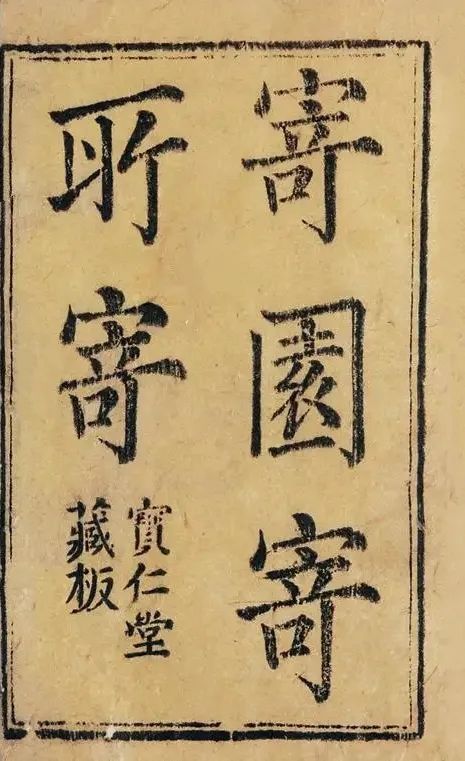 寄園寄
所寄
寳仁堂
藏板